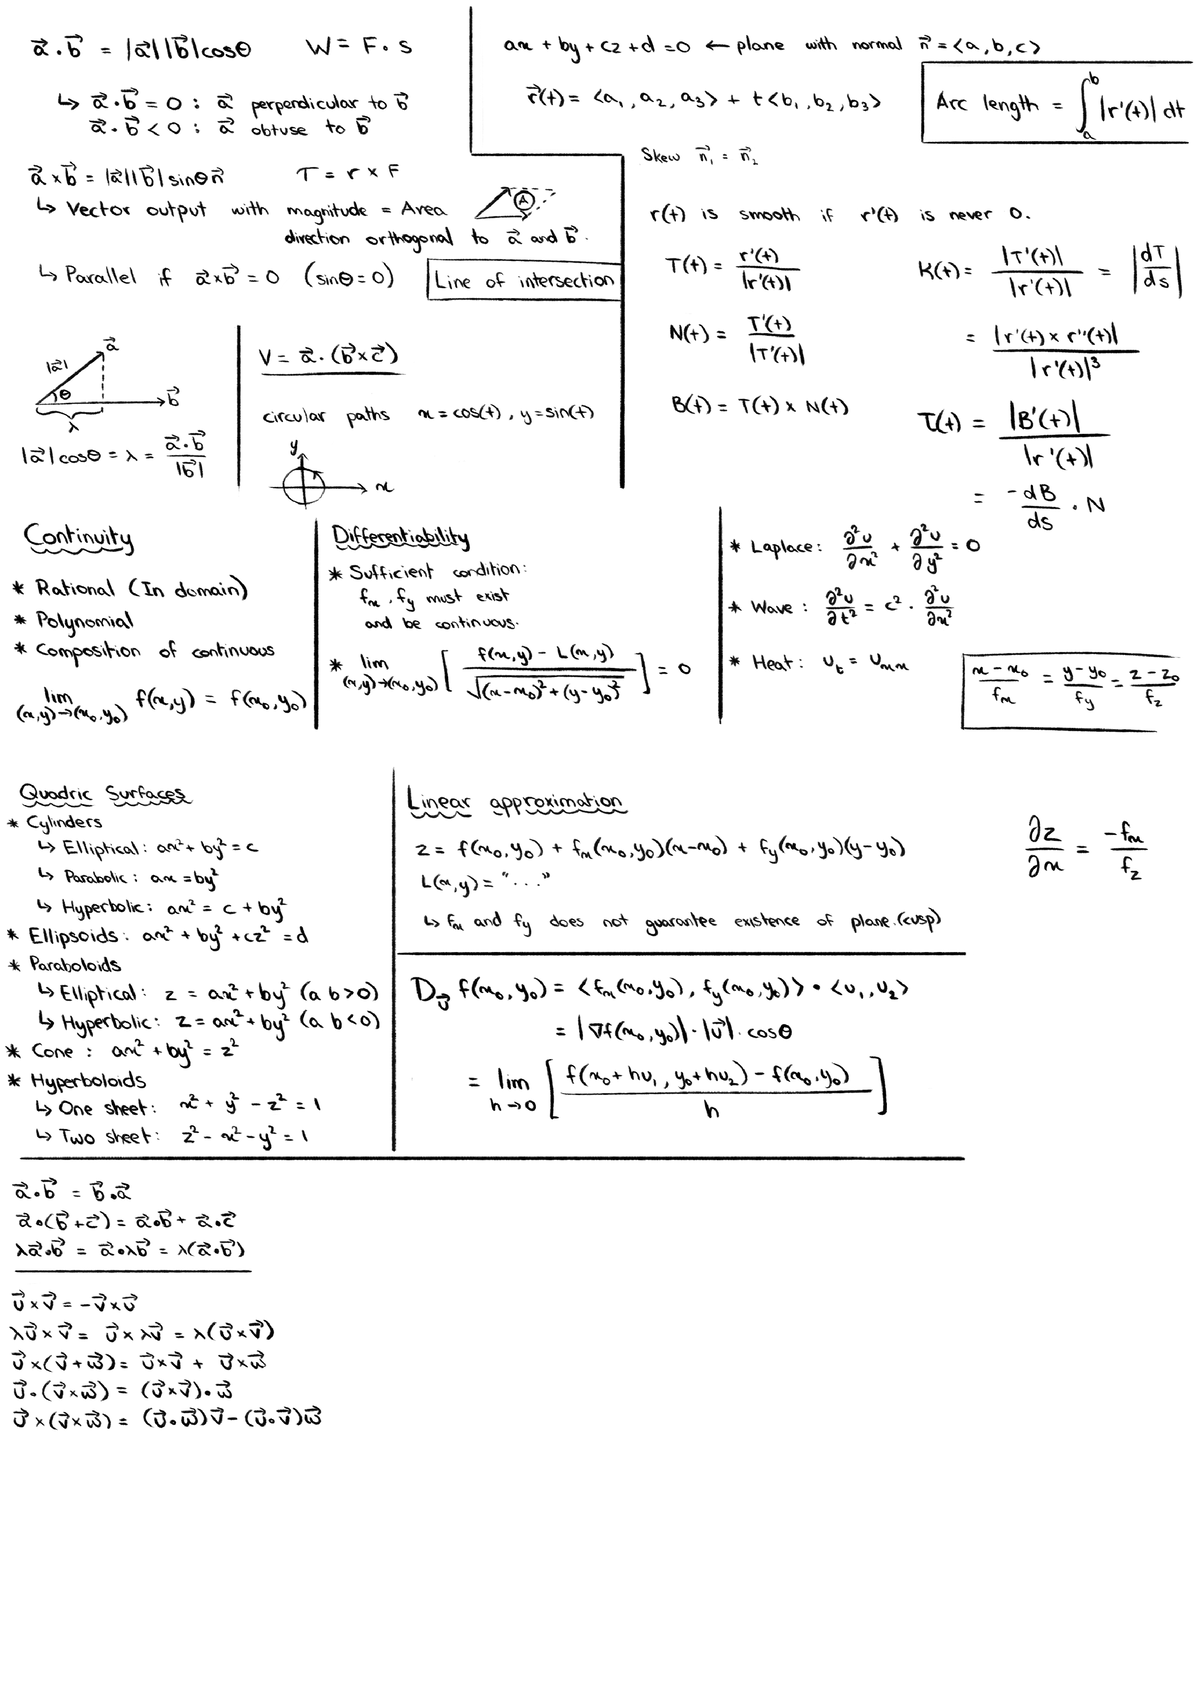 a⃗ . b⃗ = |a⃗| |b⃗| cosθ    W = F . s
↳ a⃗ . b⃗ = 0 : a⃗ perpendicular to b⃗
a⃗ . b⃗ < 0 : a⃗ obtuse to b⃗
a⃗ × b⃗ = |a⃗||b⃗| sinθ n⃗    τ = r × F
↳ Vector output with magnitude = Area    A
direction orthogonal to a⃗ and b⃗.
↳ Parallel if a⃗ × b⃗ = 0 (sinθ = 0)
Line of intersection
ax + by + cz + d = 0 ← plane with normal n⃗ = <a, b, c>
r⃗(t) = <a₁, a₂, a₃> + t<b₁, b₂, b₃>
Arc length = ∫ₐᵇ |r'(t)| dt
Skew n⃗₁ = n⃗₂
r(t) is smooth if r'(t) is never 0.
T(t) = r'(t) / |r'(t)|
N(t) = T'(t) / |T'(t)|
B(t) = T(t) × N(t)
K(t) = |T'(t)| / |r'(t)| = |dT/ds|
= |r'(t) × r''(t)| / |r'(t)|³
τ(t) = |B'(t)| / |r'(t)|
= -dB/ds . N
|a⃗|
a⃗
θ
b⃗
λ
|a⃗| cosθ = λ = a⃗ . b⃗ / |b⃗|
V = a⃗ . (b⃗ × c⃗)
circular paths x = cos(t), y = sin(t)
y
x
Continuity
* Rational (In domain)
* Polynomial
* Composition of continuous
lim (x,y)→(x₀,y₀) f(x,y) = f(x₀,y₀)
Differentiability
* Sufficient condition:
fₓ, f_y must exist
and be continuous.
* lim (x,y)→(x₀,y₀) [ f(x,y) - L(x,y) / √((x-x₀)² + (y-y₀)²) ] = 0
* Laplace: ∂²u/∂x² + ∂²u/∂y² = 0
* Wave: ∂²u/∂t² = c² . ∂²u/∂x²
* Heat: u_t = u_xx
x - x₀ / fₓ = y - y₀ / f_y = z - z₀ / f_z
Quadric Surfaces
* Cylinders
↳ Elliptical: ax² + by² = c
↳ Parabolic: ax = by²
↳ Hyperbolic: ax² = c + by²
* Ellipsoids: ax² + by² + cz² = d
* Paraboloids
↳ Elliptical: z = ax² + by² (a b > 0)
↳ Hyperbolic: z = ax² + by² (a b < 0)
* Cone: ax² + by² = z²
* Hyperboloids
↳ One sheet: x² + y² - z² = 1
↳ Two sheet: z² - x² - y² = 1
Linear approximation
z = f(x₀,y₀) + fₓ(x₀,y₀)(x-x₀) + f_y(x₀,y₀)(y-y₀)
L(x,y) = "..."
↳ fₓ and f_y does not guarantee existence of plane. (cusp)
∂z/∂x = -fₓ/f_z
D_u⃗ f(x₀,y₀) = <fₓ(x₀,y₀), f_y(x₀,y₀)> • <u₁, u₂>
= |∇f(x₀,y₀)| . |u⃗| . cosθ
= lim h→0 [ f(x₀+hu₁, y₀+hu₂) - f(x₀,y₀) / h ]
a⃗ • b⃗ = b⃗ • a⃗
a⃗ • (b⃗ + c⃗) = a⃗ • b⃗ + a⃗ • c⃗
λa⃗ • b⃗ = a⃗ • λb⃗ = λ(a⃗ • b⃗)
u⃗ × v⃗ = -v⃗ × u⃗
λu⃗ × v⃗ = u⃗ × λv⃗ = λ(u⃗ × v⃗)
u⃗ × (v⃗ + w⃗) = u⃗ × v⃗ + u⃗ × w⃗
u⃗ • (v⃗ × w⃗) = (u⃗ × v⃗) • w⃗
u⃗ × (v⃗ × w⃗) = (u⃗ • w⃗)v⃗ - (u⃗ • v⃗)w⃗